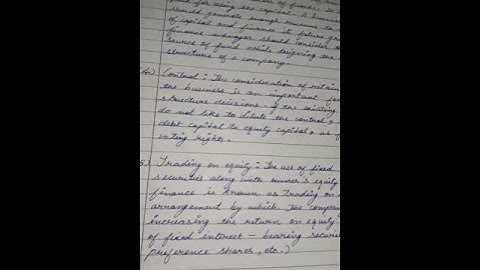 fund for using the capital. A busi
should generate enough revenue to
of capital and finance its future gro
finance manager should consider t
source of fund while designing the
structure of a company.
Control: The consideration of retain
the business is an important fa
structure decisions. if the existing
do not like to dilute the control,
debt capital to equity capital, as
voting rights.
5) Trading on equity: The use of fixed
securities along with owner's equity
finance is known as trading on
arrangement by which the company
increasing the return on equity
of fixed interest - bearing securi
preference shares, etc.)